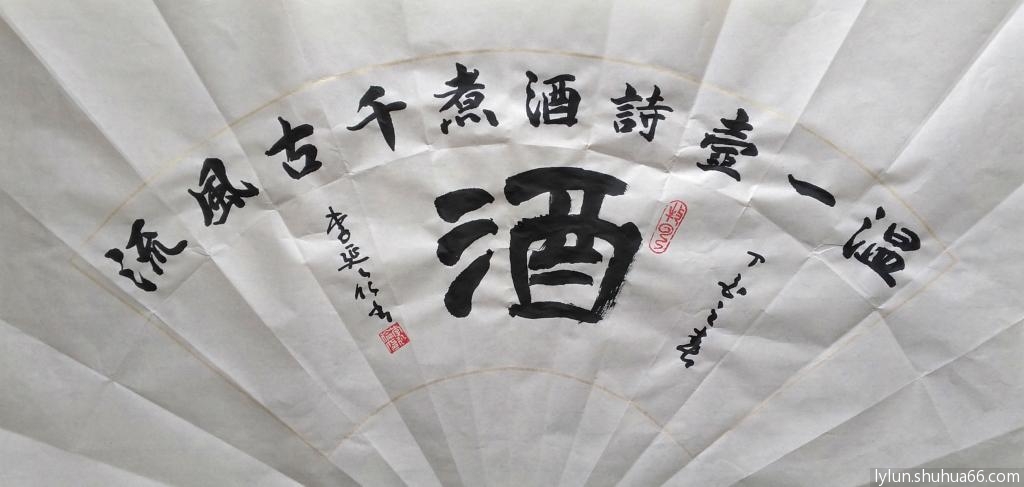 温一壺詩酒煮千古風流
酒
丁酉之春
李延
书
lylun.shuhua66.com